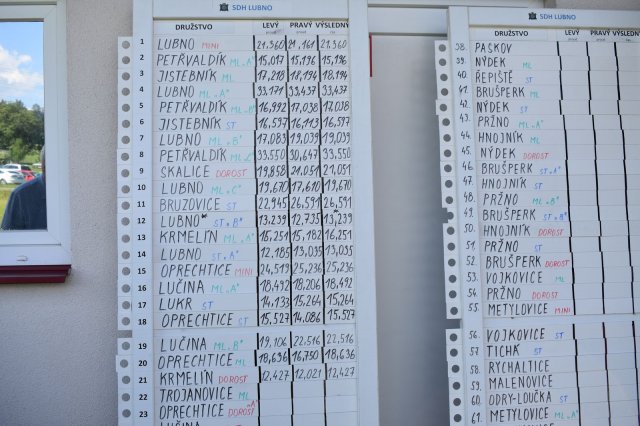 SDH LUBNO
DRUŽSTVO LEVÝ PRAVÝ VÝSLEDNÝ
1 LUBNO MINI 21,360 21,161 21,360
2 PETŘVALDÍK ML „A" 15,017 15,196 15,196
3 JISTEBNÍK ML 17,218 18,194 18,194
4 LUBNO ML „A" 33,171 33,437 33,437
5 PETŘVALDÍK ML „B" 16,992 17,038 17,038
6 JISTEBNÍK ST 16,597 16,113 16,597
7 LUBNO ML „B" 17,083 19,039 19,039
8 PETŘVALDÍK ML „C" 33,550 30,647 33,550
9 SKALICE DOROST 19,858 21,051 21,051
10 LUBNO ML „C" 19,670 17,610 19,670
11 BRUZOVICE ST 22,945 26,591 26,591
12 LUBNO ST „B" 13,239 12,735 13,239
13 KRMELÍN ML „A" 15,251 15,182 16,251
14 LUBNO ST „A" 12,185 13,095 13,095
15 OPRECHTICE MINI 24,519 25,236 25,236
16 LUČINA ML „A" 18,492 18,206 18,492
17 LUKR ST 14,133 15,264 15,264
18 OPRECHTICE ST 15,527 14,086 15,527
19 LUČINA ML „B" 19,106 22,516 22,516
20 OPRECHTICE ML 18,696 16,750 18,696
21 KRMELÍN DOROST 12,427 12,021 12,427
22 TROJANOVICE ML
23 OPRECHTICE DOROST „A"
LUČINA
SDH LUBNO
DRUŽSTVO LEVÝ PRAVÝ VÝSLEDNÝ
38. PASKOV
39. NÝDEK ML
40. ŘEPIŠTĚ ST
41. BRUŠPERK ML
42. NÝDEK ST
43. PRŽNO ML „A"
44. HNOJNÍK ML
45. NÝDEK DOROST
46. BRUŠPERK ST „A"
47. HNOJNÍK ST
48. PRŽNO ML „B"
49. BRUŠPERK ST „B"
50. HNOJNÍK DOROST
51. PRŽNO ST
52. BRUŠPERK DOROST
53. VOJKOVICE ML
54. PRŽNO DOROST
55. METYLOVICE MINI
56. VOJKOVICE ST
57. TICHÁ ST
58. RYCHALTICE
59. MALENOVICE
60. ODRY-LOUČKA ST
61. METYLOVICE ML „A"